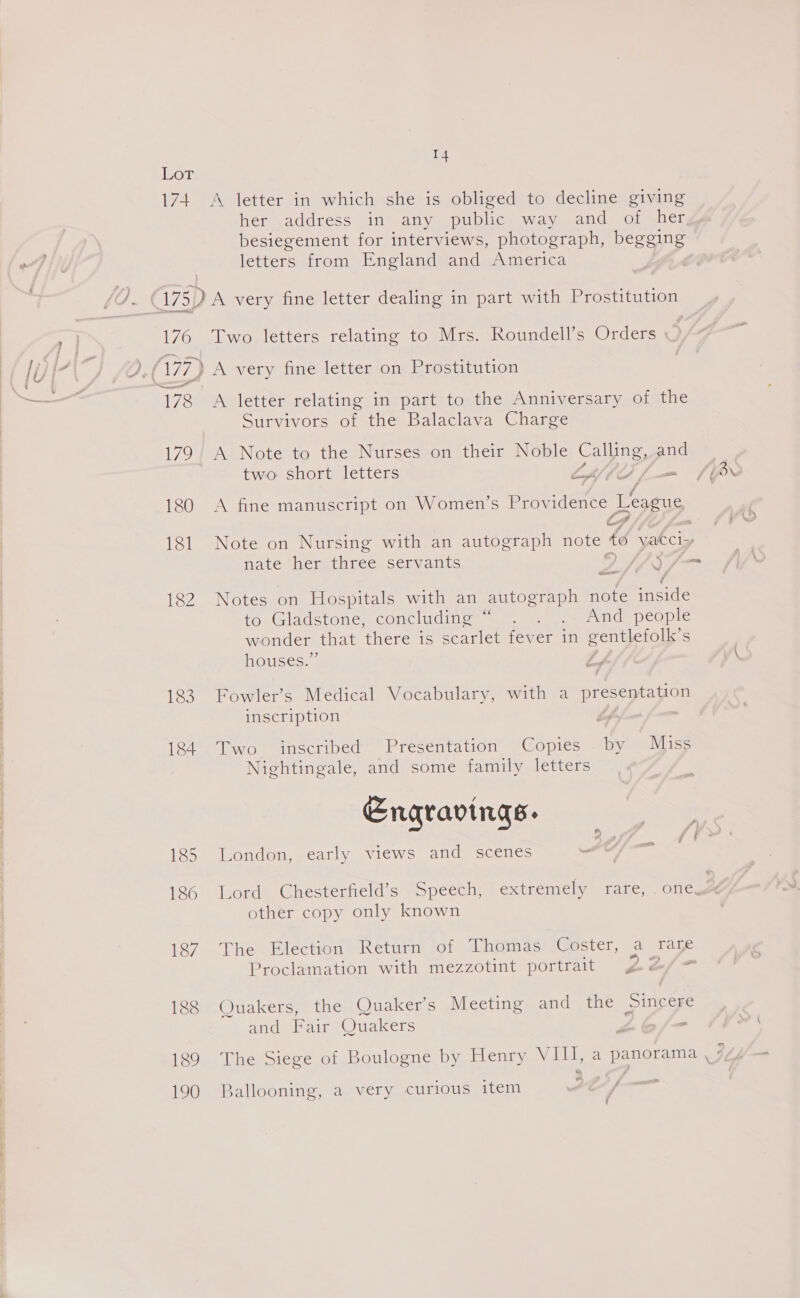 14
LOT
174 A letter in which she is obliged to decline giving
her address in any public way and of her
besiegement for interviews, photograph, begging
letters from England and America
175 A very fine letter dealing in part with Prostitution
176 Two letters relating to Mrs. Roundell's Orders
177 A very fine letter on Prostitution
178 A letter relating in part to the Anniversary of the
Survivors of the Balaclava Charge
179 A Note to the Nurses on their Noble Calling, and
two short letters
180 A fine manuscript on Women's Providence League
181 Note on Nursing with an autograph note to vacci-
nate her three servants
182 Notes on Hospitals with an autograph note inside
to Gladstone, concluding “ . . . And people
wonder that there is scarlet fever in gentlefolk's
houses.”
183 Fowler's Medical Vocabulary, with a presentation
inscription
184 Two inscribed Presentation Copies by Miss
Nightingale, and some family letters
Engravings.
185 London, early views and scenes
186 Lord Chesterfield's Speech, extremely rare, one
other copy only known
187 The Election Return of Thomas Coster, a rare
Proclamation with mezzotint portrait
188 Quakers, the Quaker's Meeting and the Sincere
and Fair Quakers
189 The Siege of Boulogne by Henry VIII, a panorama
190 Ballooning, a very curious item